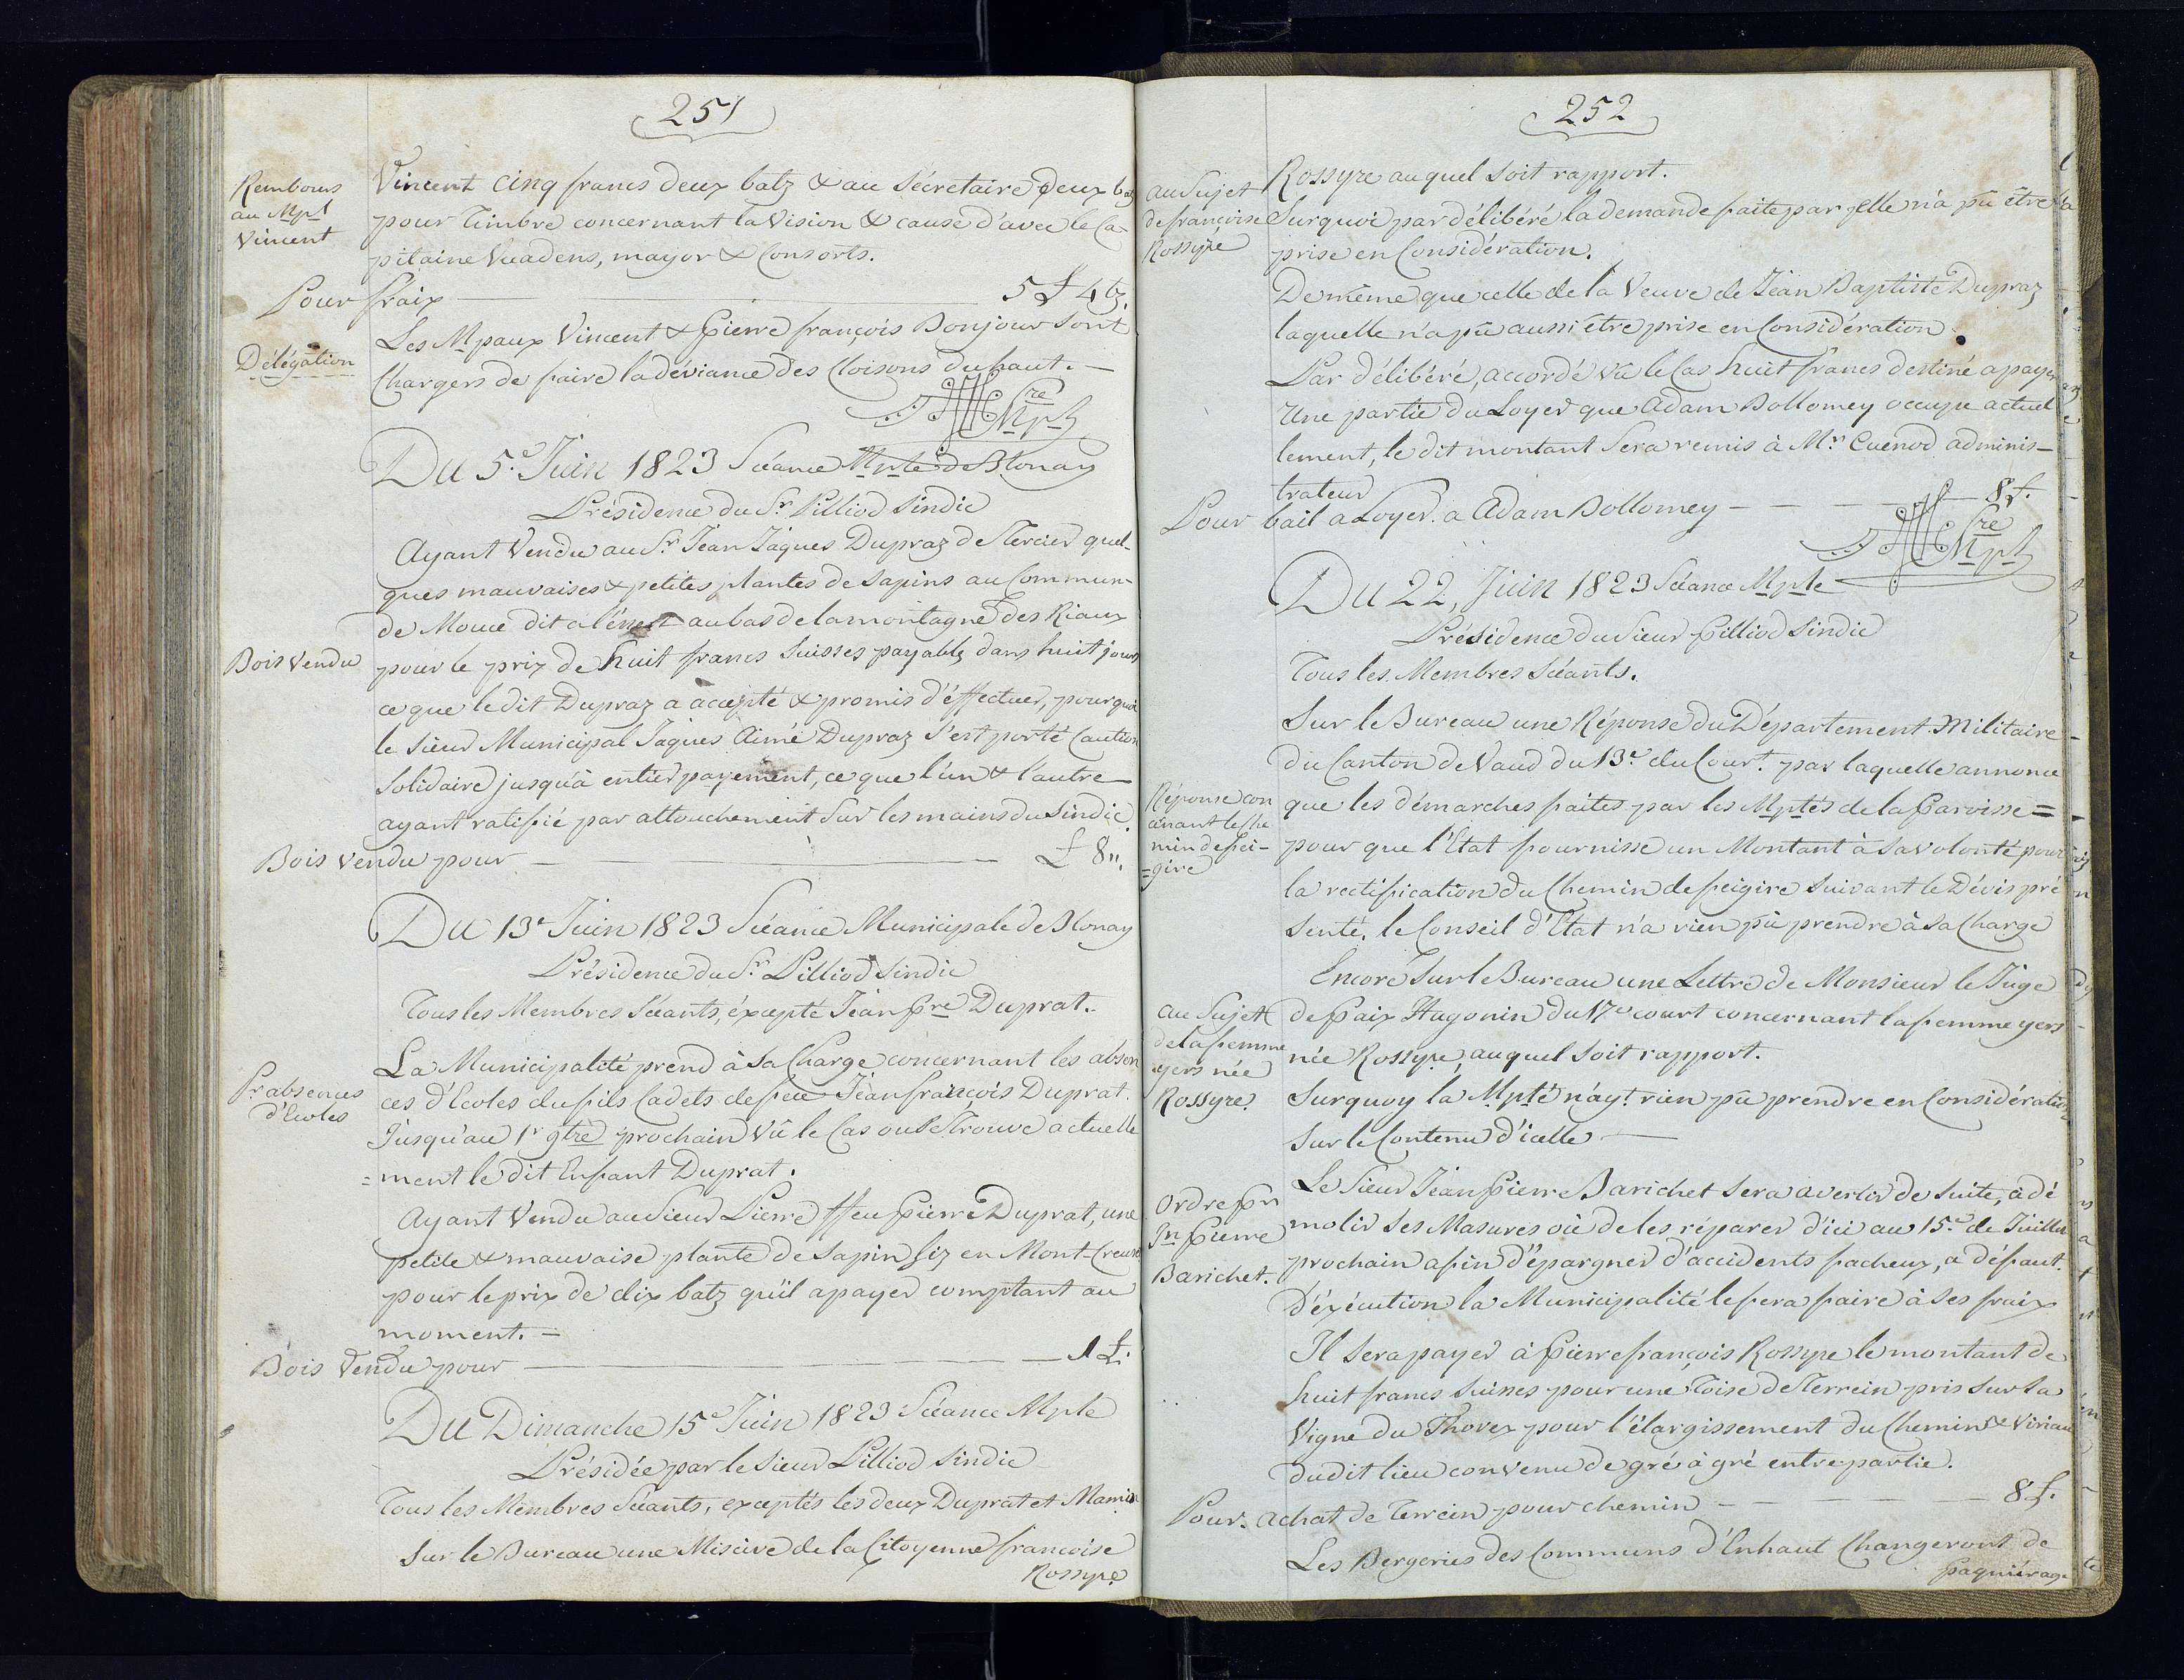 251
Rembours
au Mpl
Vincent
Vincent cinq francs deux batz & au Sécretaire deux batz
pour timbre concernant la Vision & cause d'avec le Ca-
pitaine Vuadens, mayor & Consorts.
Pour fraix — 5 £ 4 bz.
Délégation
Les Mpaux Vincent & Pierre françois Bonjour sont
Chargers de faire la déviance des Cloisons du haut. —
Cre Mpl
Du 5e Juin 1823 Séance Mple de Blonay
Présidence du Sr Pilliod Sindic
Ayant Vendu au Sr Jean Jaques Dupraz de Tercier quel-
ques mauvaises & petites plantes de Sapins au Commun-
de Mouce dit a au bas de la montagne des Riaux
Bois Vendu
pour le prix de huit francs Suisses payable dans huit jours
ce que le dit Dupraz a accepté & promis d'éffectuer, pourquoi
le Sieur Municipal Jaques Aimé Dupraz S'est porté Caution
Solidaire jusqu'à entier payement, ce que l'un & l'autre
ayant ratifié par attouchement Sur les mains du Sindic.
Bois Vendu pour — £ 8 ".
Du 13e Juin 1823 Séance Municipale de Blonay
Présidence du Sr. Pilliod Sindic
Tous les Membres Séants, éxcepté Jean Pre Duprat.
Pr absences
d'Ecoles
La Municipalité prend à Sa Charge concernant les absen
ces d'Ecoles du fils Cadets de feu Jean françois Duprat.
Jusqu'au 1r 9tre prochain Vû le Cas ou Se Trouve actuelle
= ment le dit Enfant Duprat.
Ayant Vendu au Sieur Pierre ffeu Pierre Duprat, une
petite & mauvaise plante de Sapin Siz en Mont-Creux
pour le prix de dix batz qu'il a payer comptant au
moment. =
Bois Vendu pour — 1 £.
Du Dimanche 15e Juin 1823 Séance Mple
Présidée par le Sieur Pilliod Sindic
Tous les Membres Séants, exceptés les deux Duprat et Mamin
Sur le Bureau une Miscive de la Citoyenne francoise
Rossyre
252
au Sujet
de françoise
Rossyre
Rossyre auquel Soit rapport.
Surquoi par délibéré la demande faite par jelle n'à pû être
prise en Considération.
De même que celle de la Veuve de Jean Baptiste Dupraz
laquelle n'a pû aussi être prise en Considération.
Par délibéré, accordé vû le Cas huit francs destiné a payer
Une partie du Loyer que Adam Bollomey occupe actuel
lement, le dit montant Sera remis à Mr Cuénod adminis-
trateur
Pour bail a Loyer. a Adam Bollomey — 8 £.
Cre Mpl
Du 22, Juin 1823 Séance Mple
Présidence du Sieur Pilliod Sindic
Tous les Membres Séants.
Sur le Bureau une Réponse du Département Militaire
du Canton de Vaud du 13e du Court. par laquelle annonce
Réponse con
cénant le che
min de fei-
=gire
que les démarches faites par les Mptés de la Paroisse =
pour que l'Etat fournisse un Montant à Sa volonté pour
la rectification du Chemin de feigire Suivant le Dévis pré
senté, le Conseil d'Etat n'a rien pû prendre à Sa Charge
Encore Sur le Bureau une Lettre de Monsieur le Juge
au Sujet
de la femme
yers née
Rossyre.
de Paix Hugonin du 17e court concernant la femme yers
née Rossyre, auquel Soit rapport.
Surquoy la Mpté n'ayt. rien pû prendre en Considération
Sur le Contenu d'icelle —
Ordre pr
Jn Pierre
Barichet.
Le Sieur Jean Pierre Barichet Sera avertir de Suite, à dé
molir Ses Masures où de les réparer d'ici au 15e. de Juillet
prochain afin d'épargner d'accidents facheux, a défaut.
D'éxécution la Municipalité le fera faire à Ses fraix
Il Sera payer à Pierre françois Rossyre le montant de
huit francs Suisses pour une Toise de Terrein pris Sur Sa
Vigne du Thorex pour l'élargissement du Chemin
dudit lieu convenu de gré à gré entre partie.
Pour. achat de Terrein pour chemin — 8 £.
Les Bergeries des Communs d'Enhaut Changeront de